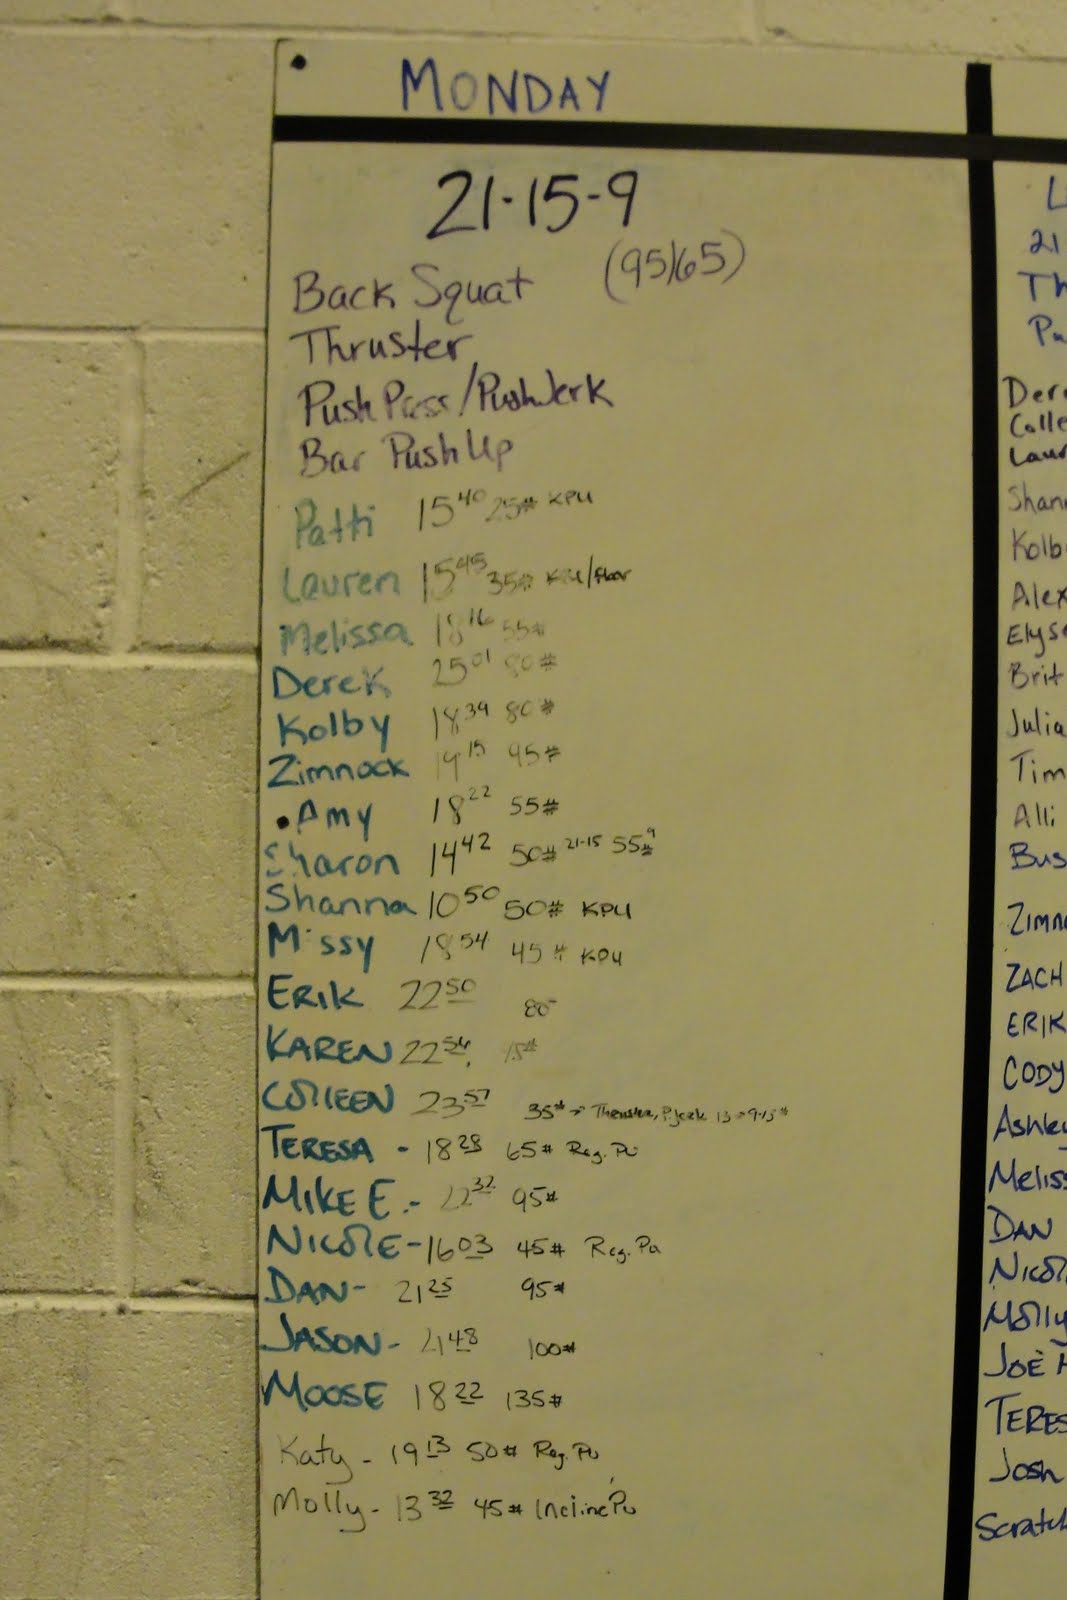 MONDAY
21-15-9
Back Squat (95/65)
Thruster
Push Press/Push Jerk
Bar Push Up
Patti 15 40 25# KPU
Lauren 15 45 35# KPU/floor
Melissa 18 16 55#
Derek 25 01 80#
Kolby 18 39 80#
Zimnock 19 15 95#
Amy 18 22 55#
Sharon 14 42 50# 21-15 55# 9
Shanna 10 50 50# KPU
Missy 18 54 45# KPU
ERIK 22 50 80
KAREN 22 56 15#
COLLEEN 23 57 35# → Thruster, P.Jerk
TERESA - 18 28 65# Reg. PU
MIKE E.- 22 32 95#
NICOLE - 16 03 45# Reg. Pu
DAN - 21 25 95#
JASON - 21 48 100#
MOOSE 18 22 135#
Katy - 19 13 50# Reg. PU
Molly - 13 32 45# Incline PU
L
21
Th
Pu
Dere
Colle
Laur
Shann
Kolb
Alex
Elyse
Brit
Julia
Tim
Alli
Bus
Zimno
ZACH
ERIK
CODY
Ashley
Meliss
DAN
Nicol
Molly
JOE H
TERES
Josh
Scratch